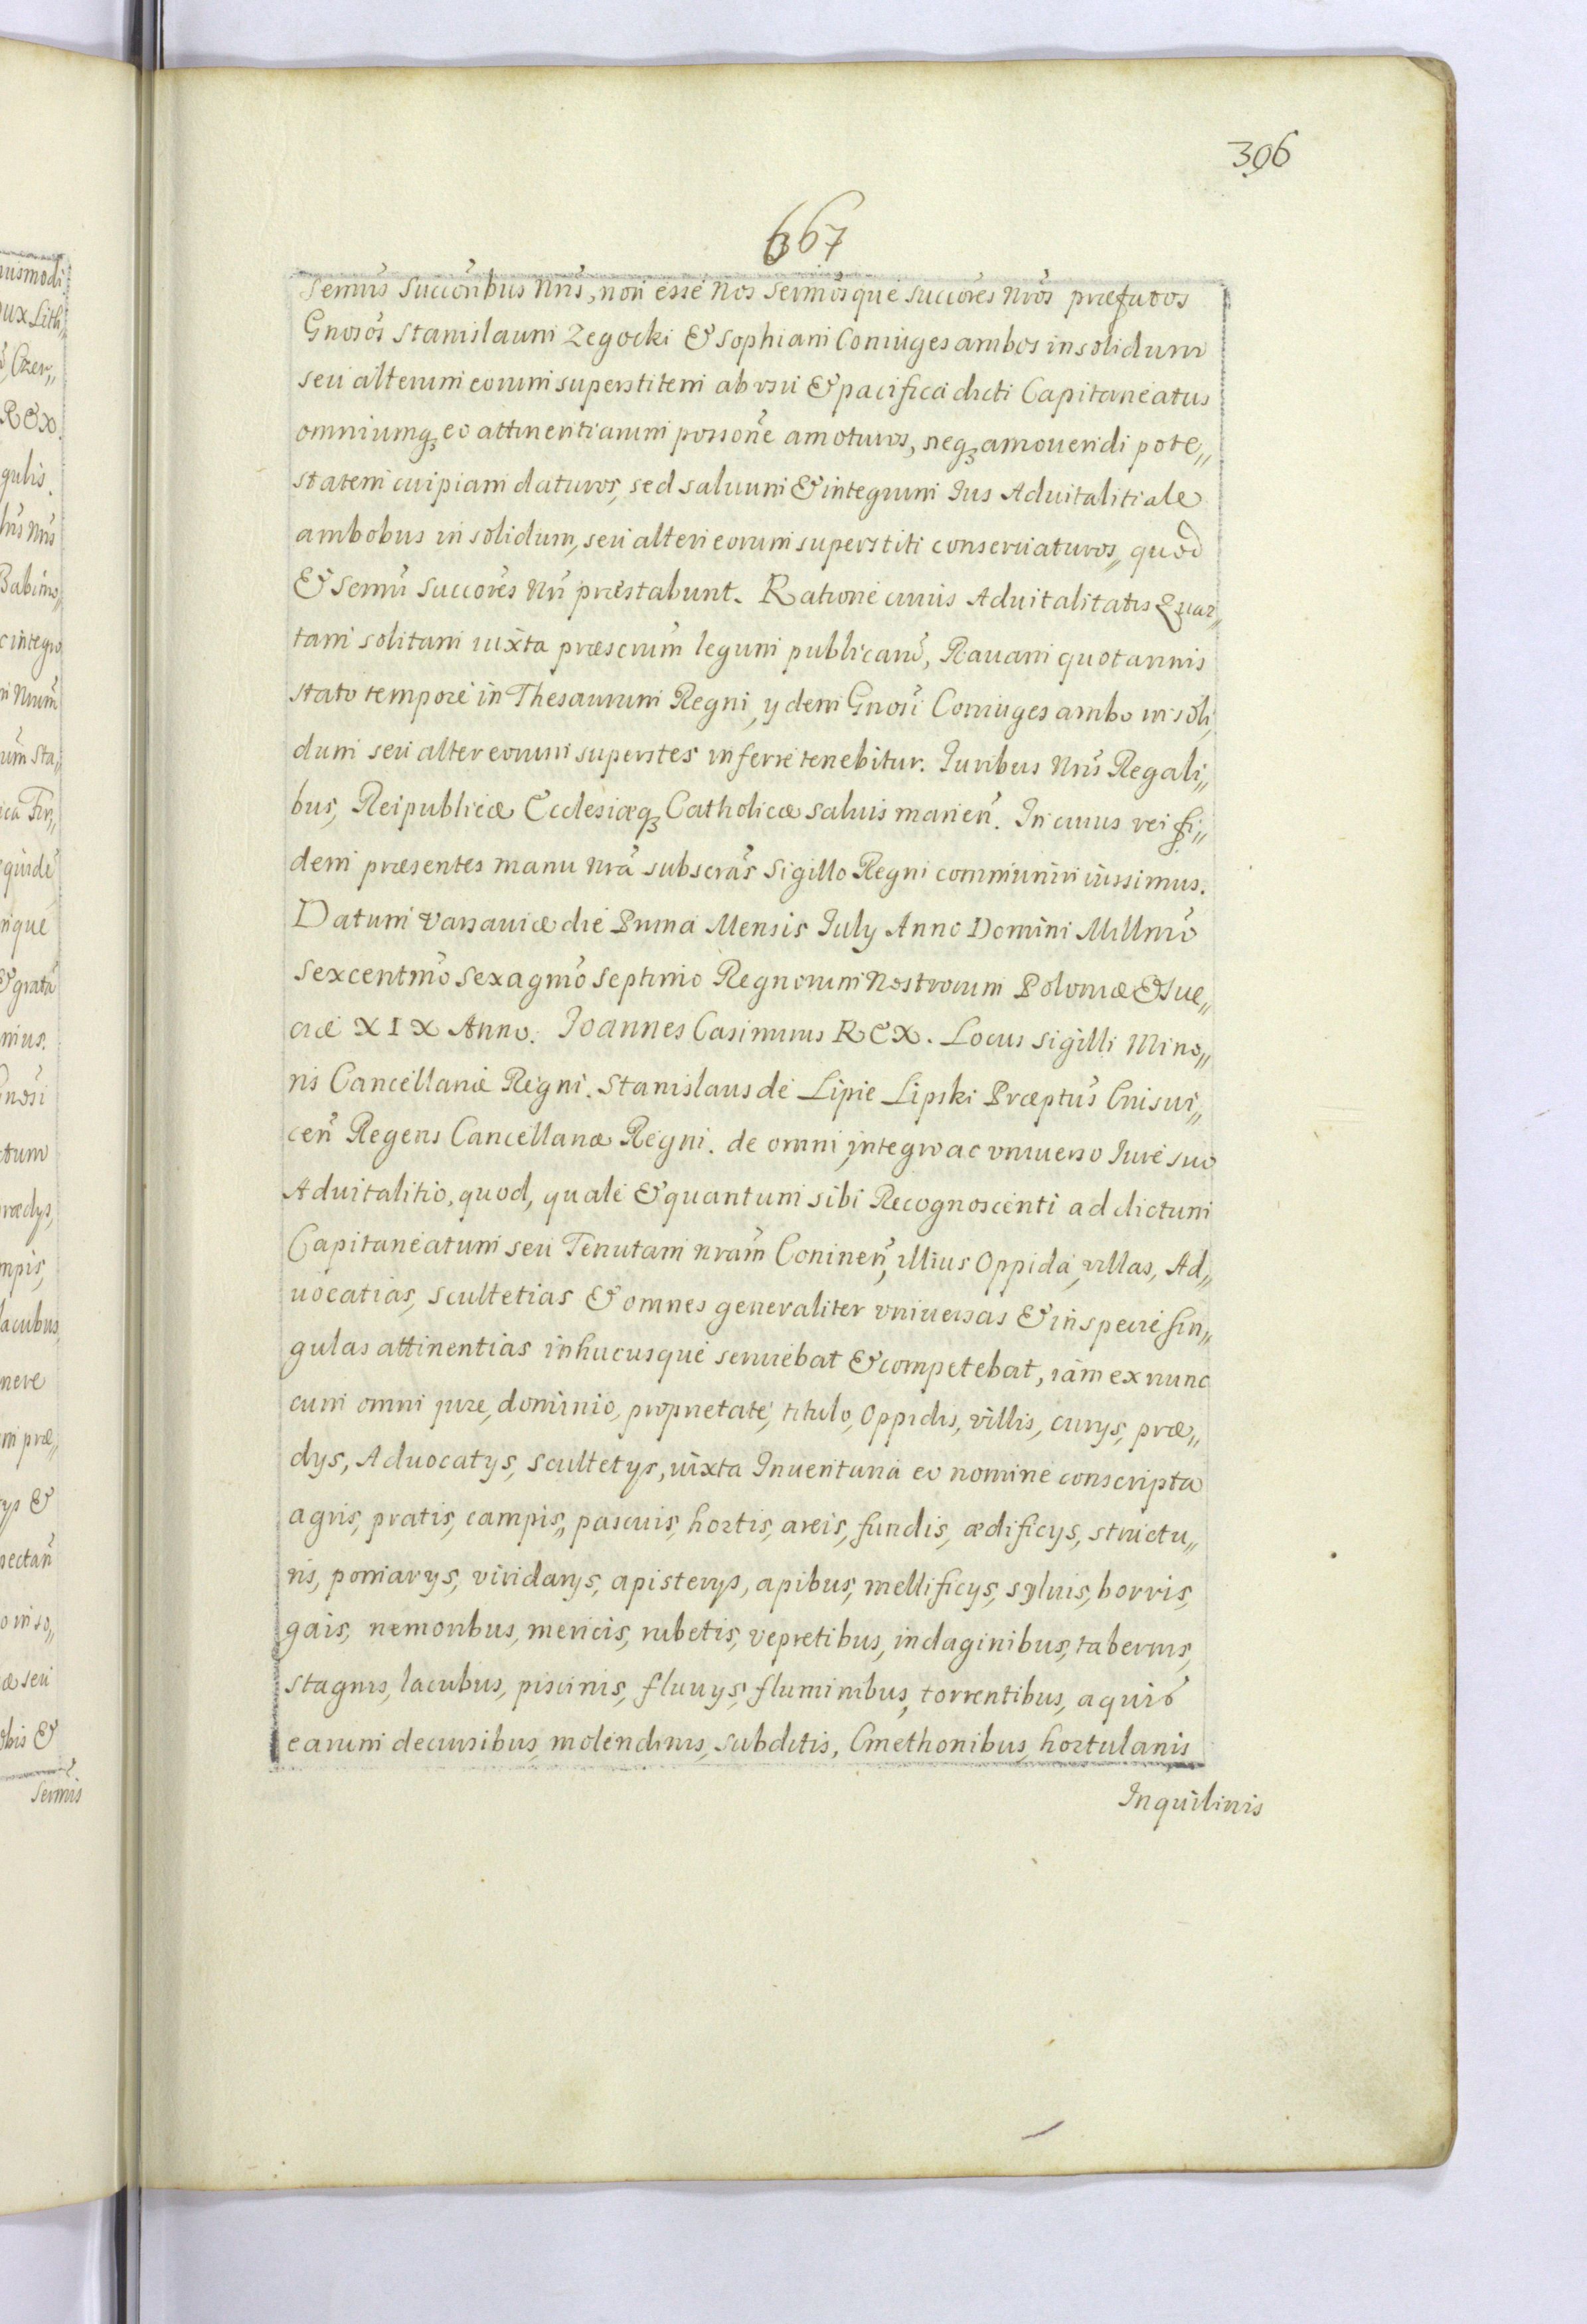 306
667
Sermis Succoribus Nris, non esse Nos Sermosque Succores Nros præfatos
Gnosos Stanislaum Zegocki & Sophiam Coniuges ambos insolidum
seu alterum eorum superstitem ab vsu & pacifica dicti Capitaneatus
omniumq eo attinentiarum possone amoturos, neq amouendi pote„
statem cuipiam daturos, sed saluum & integrum Ius Aduitalitiale
ambobus in solidum, seu alteri eorum superstiti conseruaturos, quod
& Sermi Succores Nri præstabunt. Ratione cuius Aduitalitatis Quar„
tam solitam iuxta præscrum legum publicaru, Rauam quotannis
stato tempore in Thesaurum Regni, ydem Gnosi Coniuges ambo insoli„
dum seu alter eorum superstes inferre tenebitur. Iuribus Nris Regali„
bus, Reipublicæ Ecclesiæq Catholicæ saluis manen. In cuius rei fi„
dem præsentes manu Nra subscras Sigillo Regni communiri iussimus.
Datum Varsauiæ die Prima Mensis July Anno Domini Millmo
Sexcentmo Sexagmo Septimo Regnorum Nostrorum Poloniæ & Sue„
ciæ XIX Anno. Joannes Casimirus REX. Locus Sigilli Mino„
ris Cancellariæ Regni. Stanislaus de Lipie Lipski Præptus Crisui„
cen Regens Cancellariæ Regni. de omni integro ac vniuerso Iure suo
Aduitalitio, quod, quale & quantum sibi Recognoscenti ad dictum
Capitaneatum seu Tenutam nram Coninen, illius Oppida, villas, Ad„
uocatias, Scultetias & omnes generaliter vniuersas & in specie sin„
gulas attinentias inhucusque seruiebat & competebat, iam ex nunc
cum omni jure, dominio, proprietate, titulo, Oppidis, villis, curys, præ„
dys, Aduocatys, Scultetys, iuxta Inuentaria eo nomine conscripta
agris, pratis, campis, pascuis, hortis, areis, fundis, ædificys, structu„
ris, pomarys, viridarys, apisterys, apibus, mellificys, syluis, borris,
gais, nemoribus, mericis, rubetis, vepretibus, indaginibus, tabernis,
stagnis, lacubus, piscinis, fluuys, fluminibus, torrentibus, aquis
earum decursibus, molendinis, subditis, Cmethonibus, hortulanis
Inquilinis